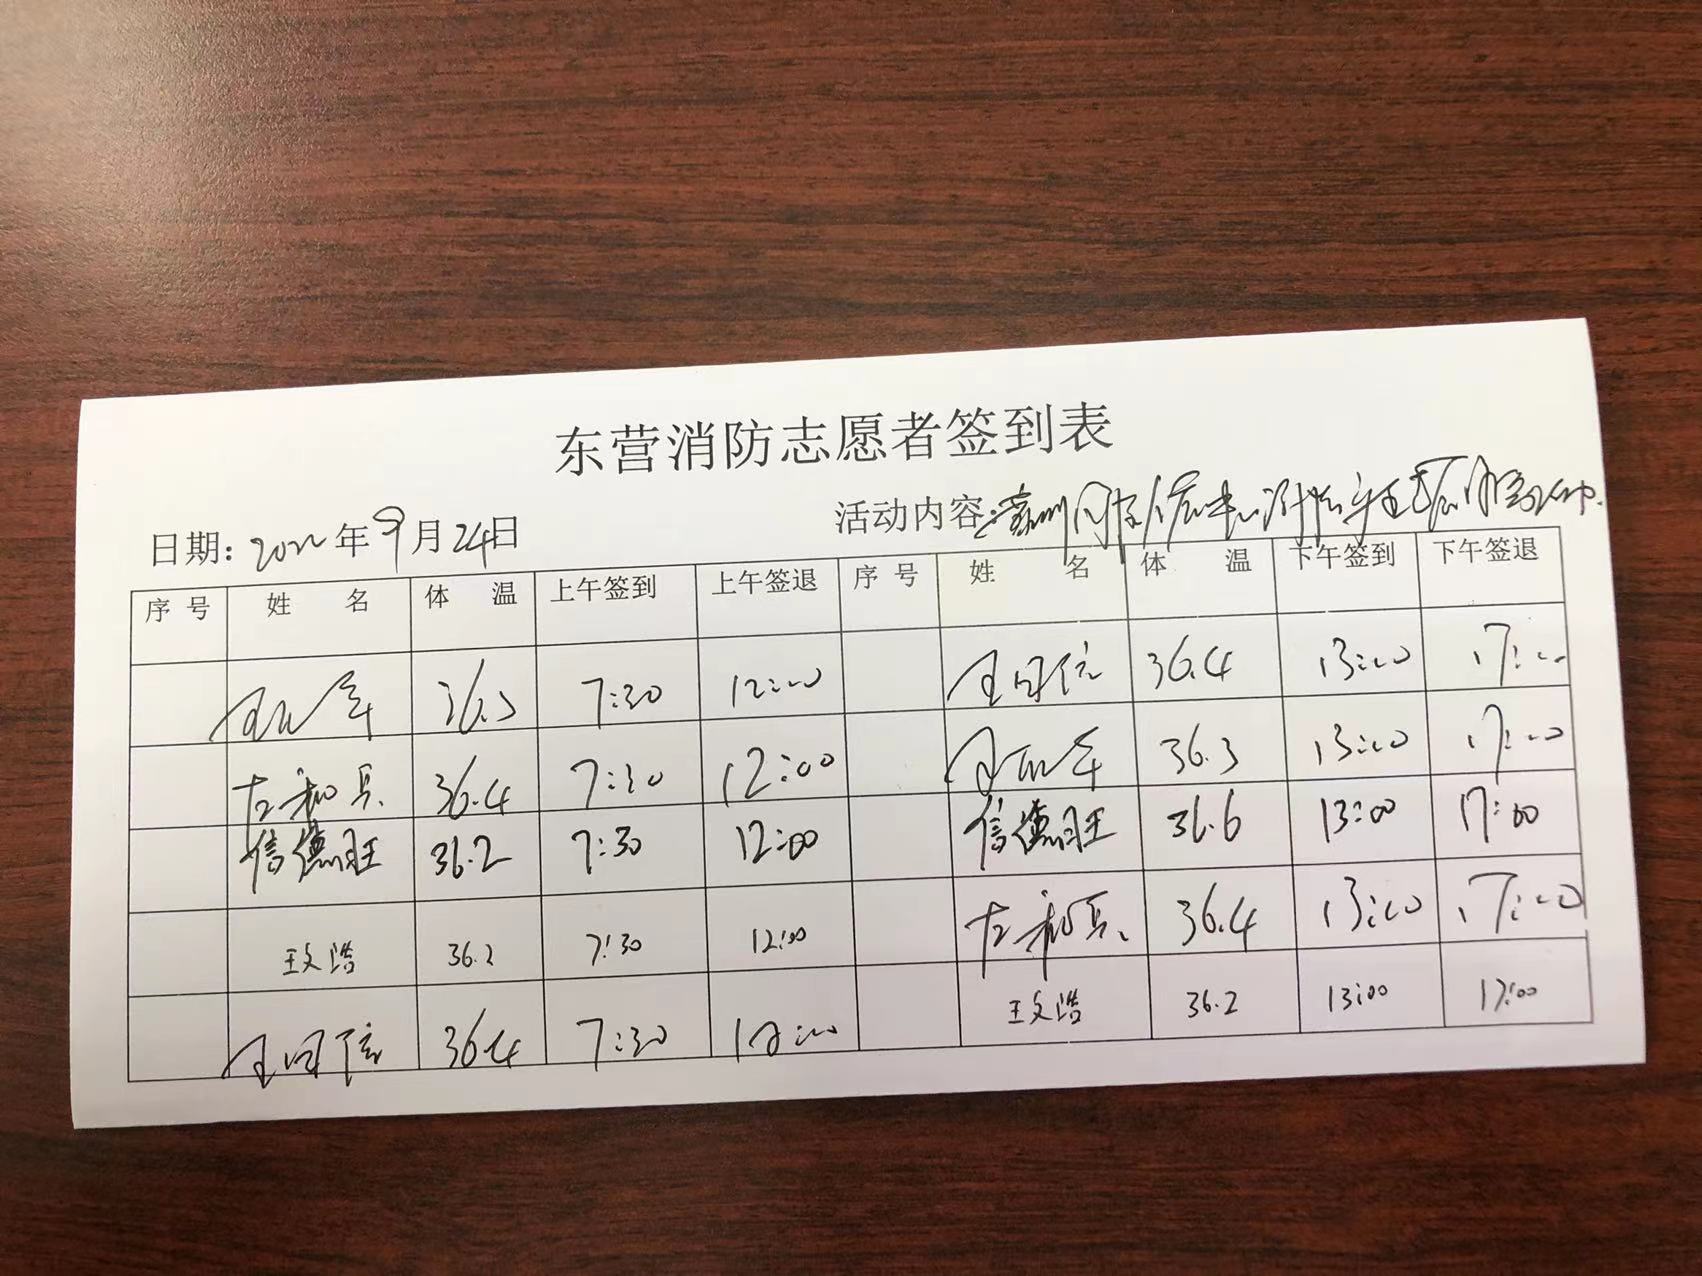 东营消防志愿者签到表
日期：2022年9月24日 活动内容：
序号 姓名 体温 上午签到 上午签退 序号 姓名 体温 下午签到 下午签退
36.3 7:30 12:00 36.4 13:00 17:00
左和兵 36.4 7:30 12:00 36.3 13:00 17:00
信德旺 36.2 7:30 12:00 信德旺 36.6 13:00 17:00
王文浩 36.2 7:30 12:00 左和兵 36.4 13:00 17:00
36.4 7:30 12:00 王文浩 36.2 13:00 17:00